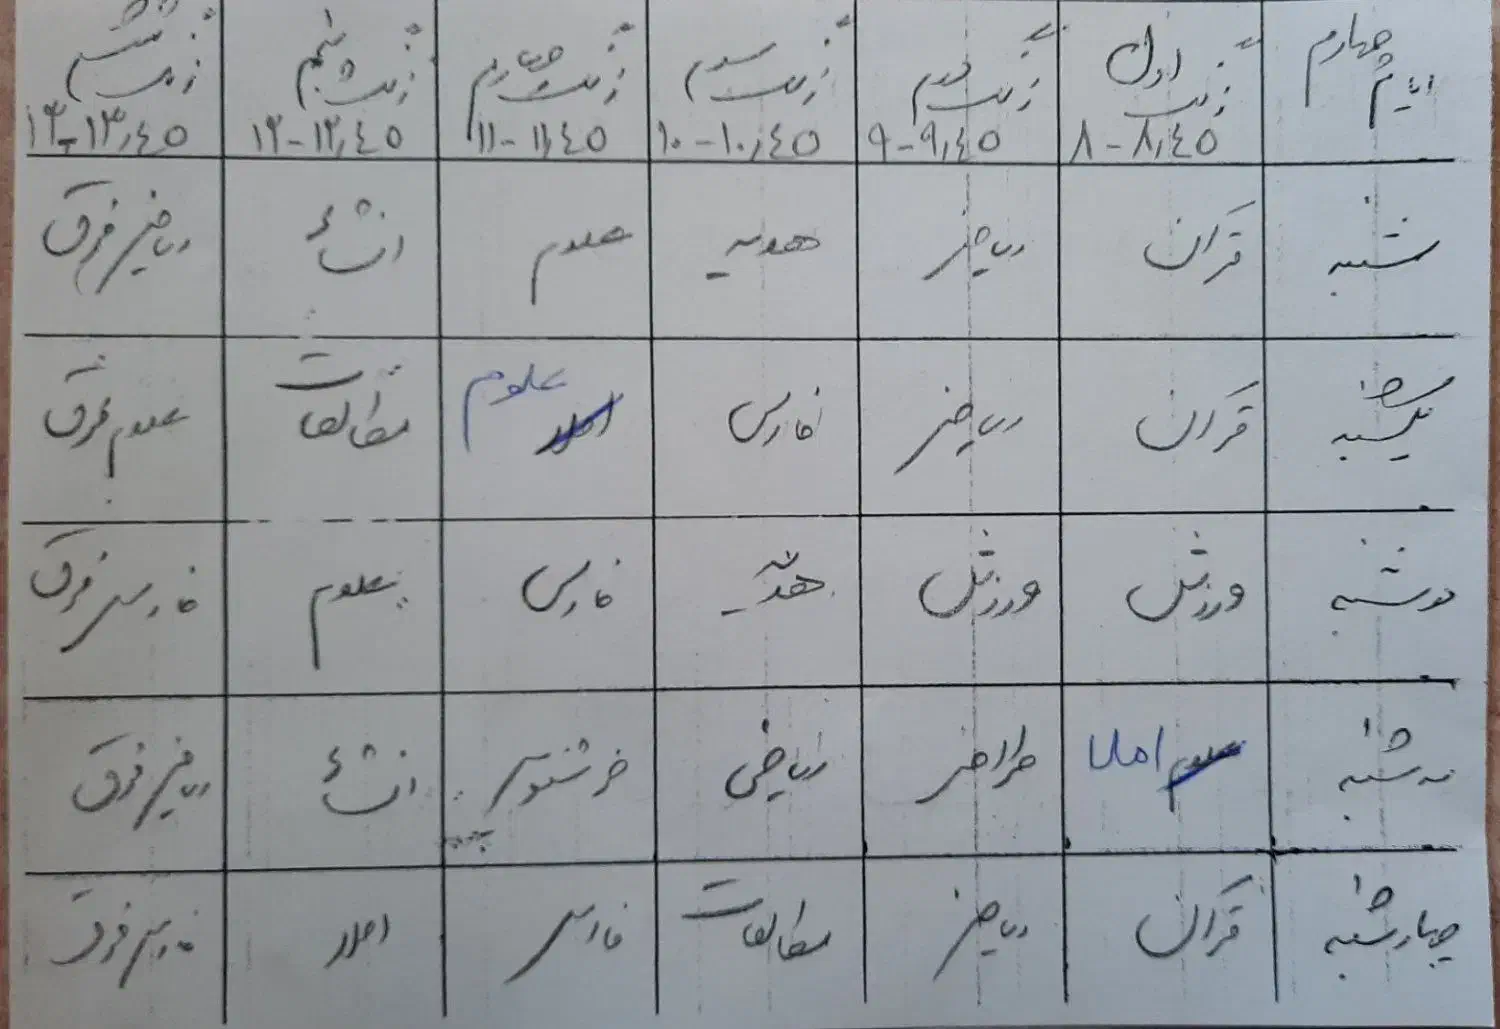 ایام چهارم | زنگ اول ۸-۸٫۴۵ | زنگ دوم ۹-۹٫۴۵ | زنگ سوم ۱۰-۱۰٫۴۵ | زنگ چهارم ۱۱-۱۱٫۴۵ | زنگ پنجم ۱۲-۱۲٫۴۵ | زنگ ششم ۱۳-۱۳٫۴۵
شنبه | قرآن | ریاضی | هدیه | علوم | انشاء | ریاضی فوق
یکشنبه | قرآن | ریاضی | فارسی | املاء علوم | مطالعات | علوم فوق
دوشنبه | ورزش | ورزش | هدیه | فارسی | علوم | فارسی فوق
سه شنبه | علوم املا | طراحی | ریاضی | خوشنویسی | انشاء | ریاضی فوق
چهارشنبه | قرآن | ریاضی | مطالعات | فارسی | املاء | فارسی فوق